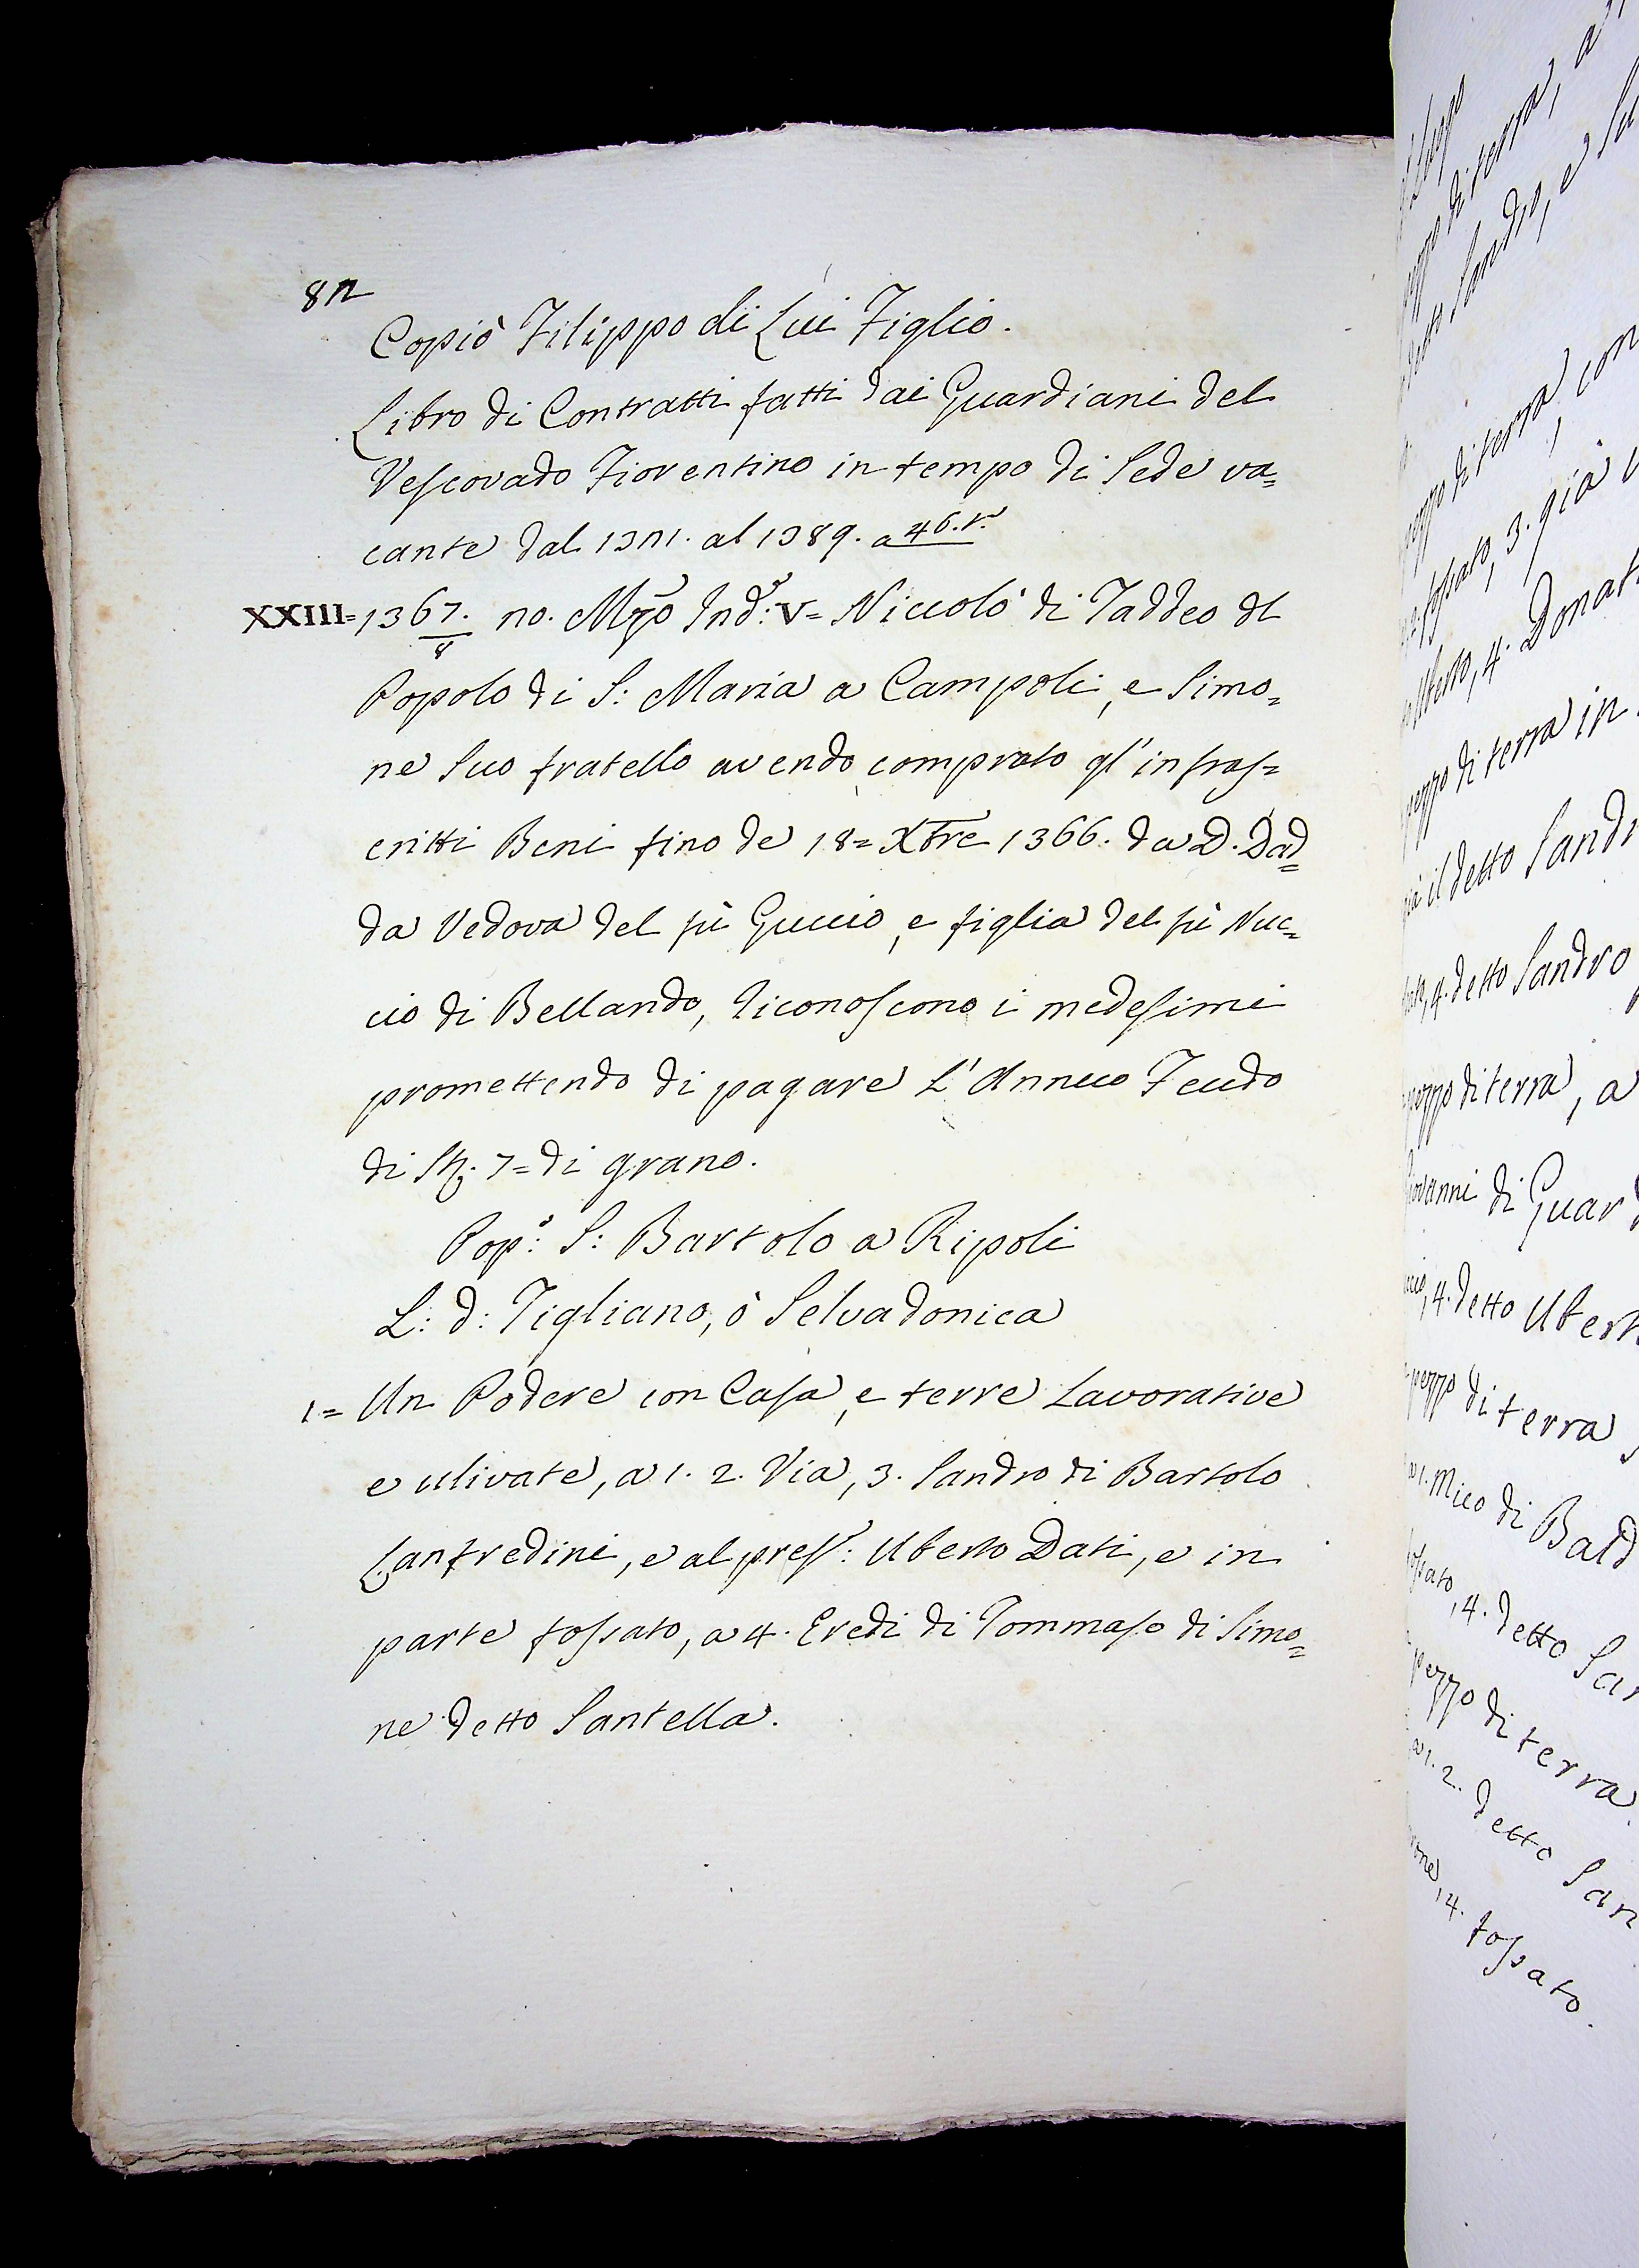 82
Copiò Filippo di Lui Figlio.
Libro di Contratti fatti dai Guardiani del
Vescovado Fiorentino in tempo di Sede va=
cante dal 1321. al 1389. a 46.t.
XXIII= 1367. 8 no. Mzo Ind: V= Niccolò di Taddeo dl
Popolo di S: Maria a Campoli, e Simo=
ne Suo fratello avendo comprato gl'infras=
critti Beni fino de 18= Xbre 1366. da D. Dad=
da Vedova del fù Guccio, e figlia del fù Nuc=
cio di Bellando, riconoscono i medesimi
promettendo di pagare L'Annuo Feudo
di St. 7= di grano.
Pop: S: Bartolo a Ripoli
L: d: Tigliano, ò Selvadonica
1= Un Podere con Casa, e terre Lavorative
e ulivate, a 1. 2. Via, 3. Sandro di Bartolo
Lanfredini, e al pres: Uberto Dati, e in
parte fossato, a 4. Eredi di Tommaso di Simo=
ne detto Santella.
di terra, a
Sandro, e
di terra, con
fossato, 3. già
4. Donat
pezzo di terra in
il detto Sandr
4. detto Sandro
pezzo di terra, a
Giovanni di Guar
4. detto Ubert
pezzo di terra
a 1. Mico di Bald
fossato, 4. detto San
pezzo di terra
a 1. 2. detto San
4. fossato.